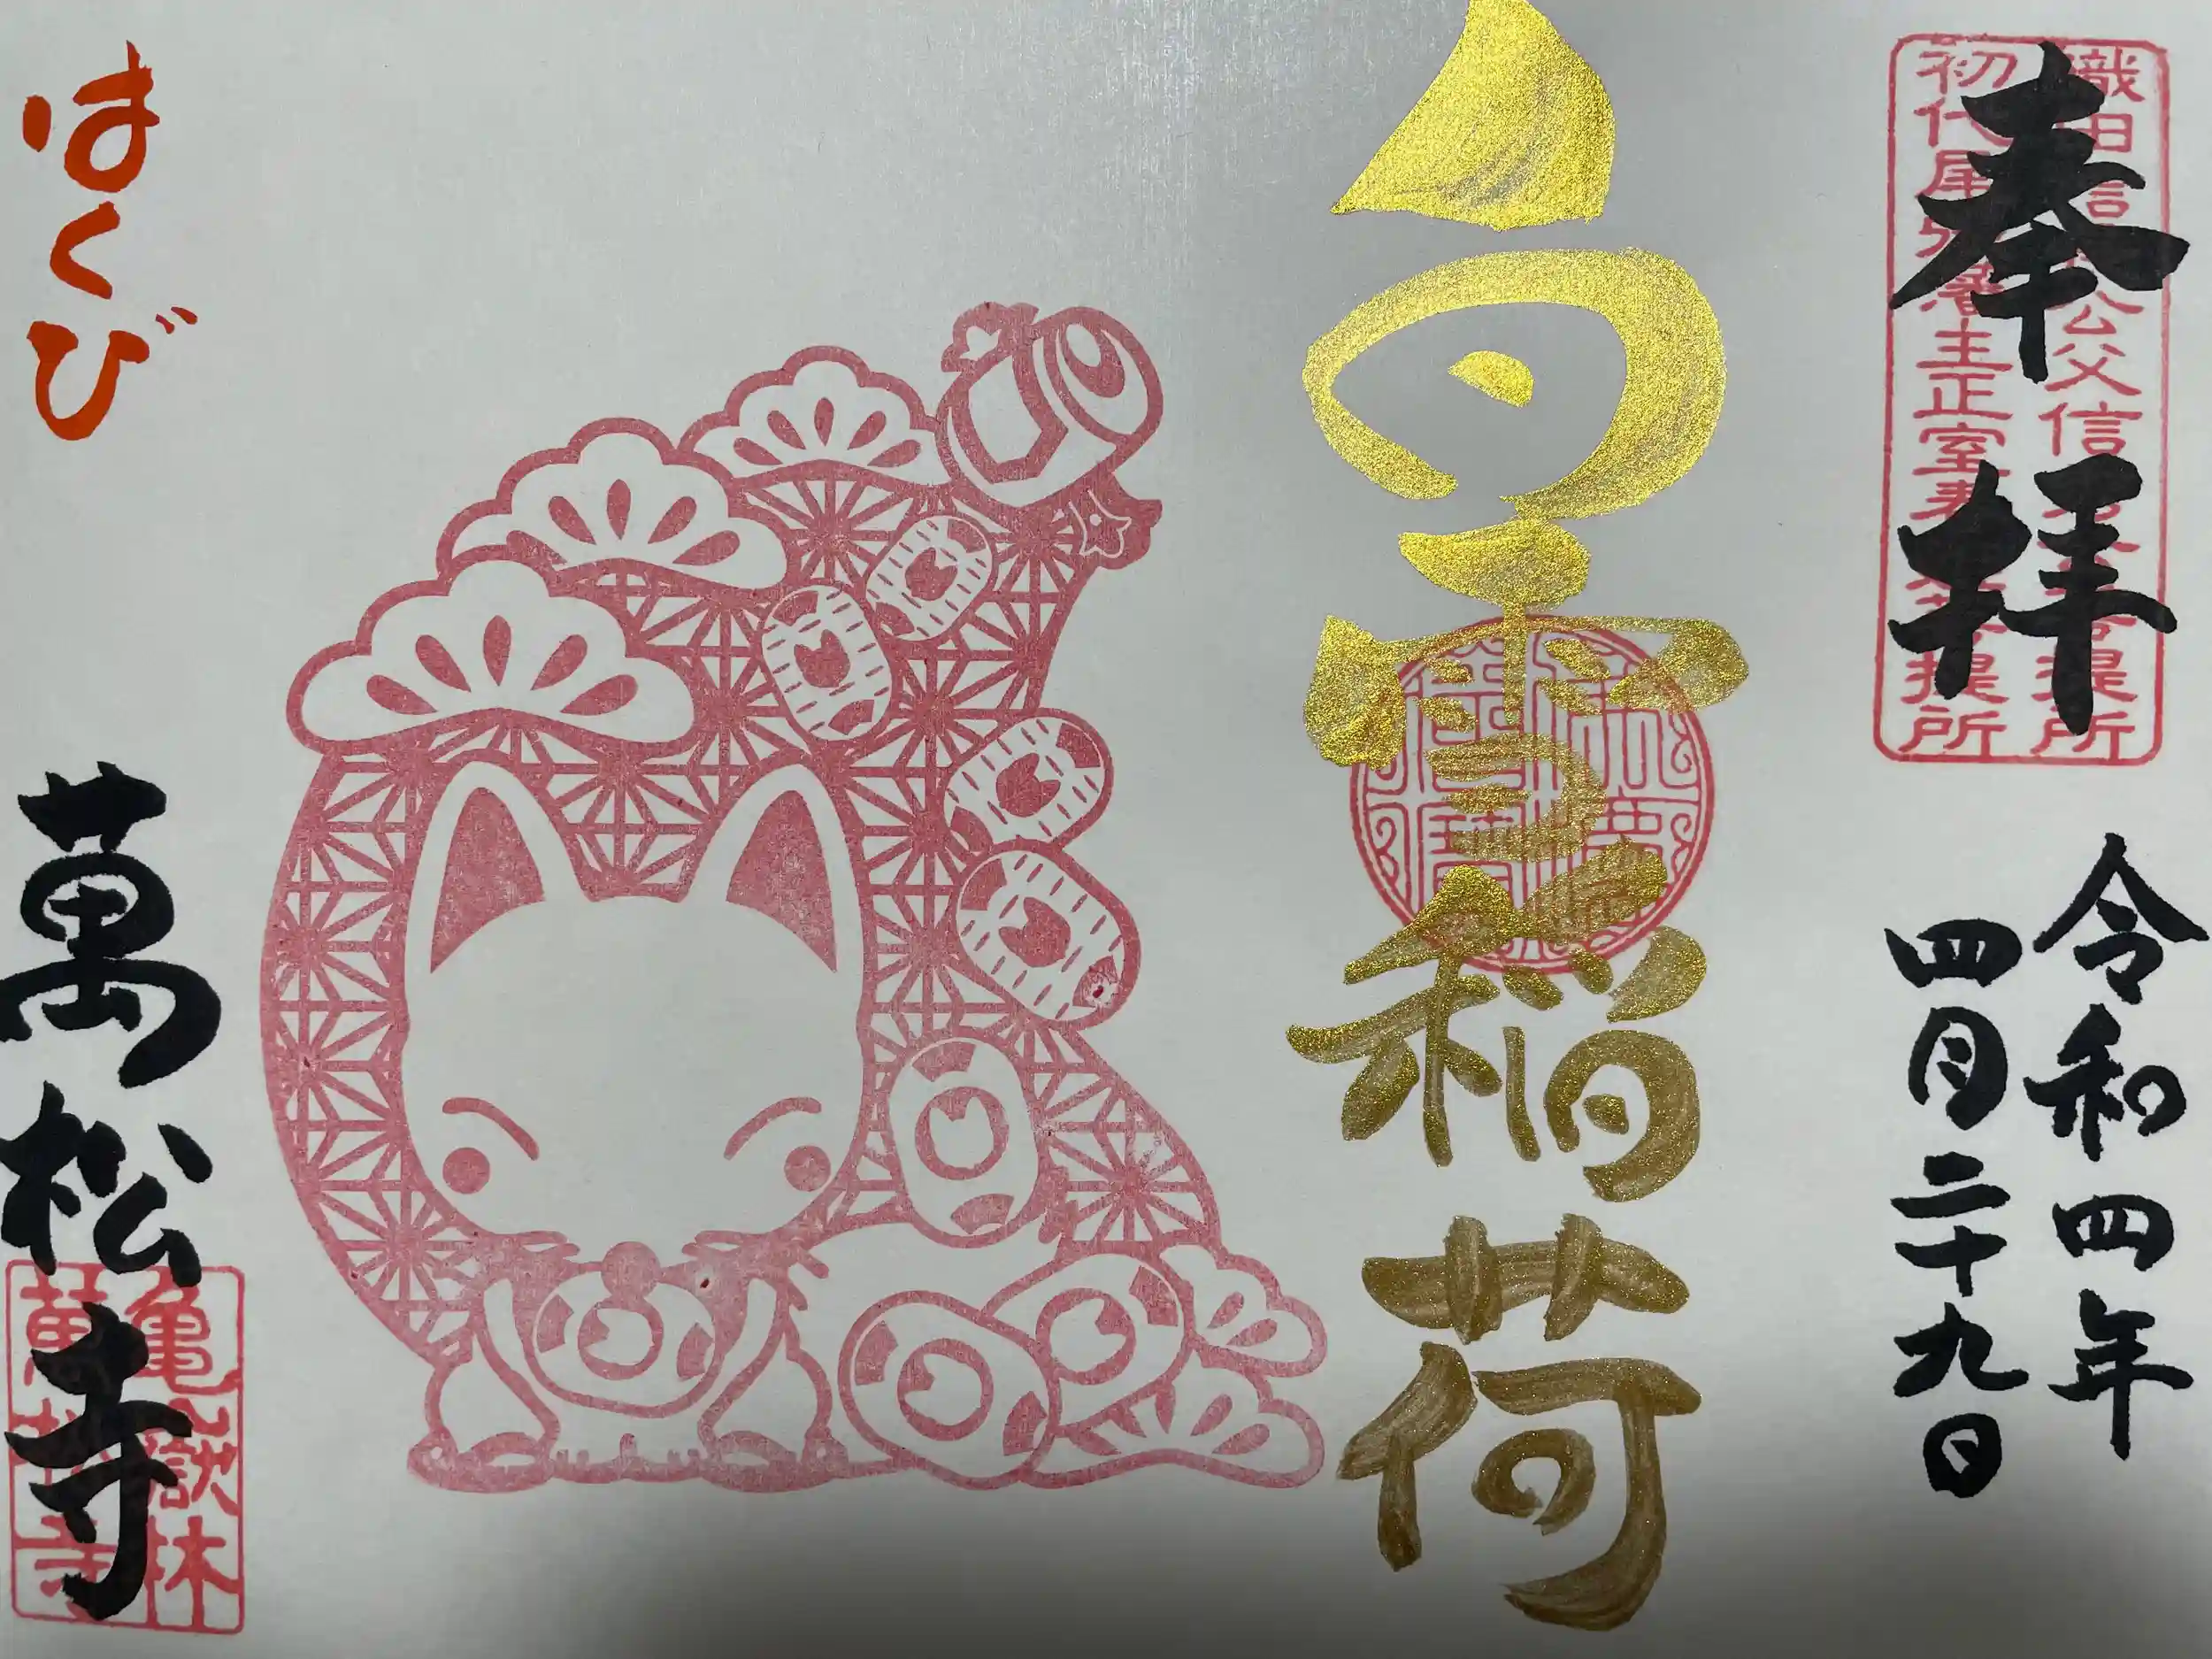 奉拝
織田信長公父信秀公菩提所
初代尾張藩主正室春姫菩提所
令和四年
四月二十九日
白雪稲荷
はくび
萬松寺
亀嶽林
萬松寺